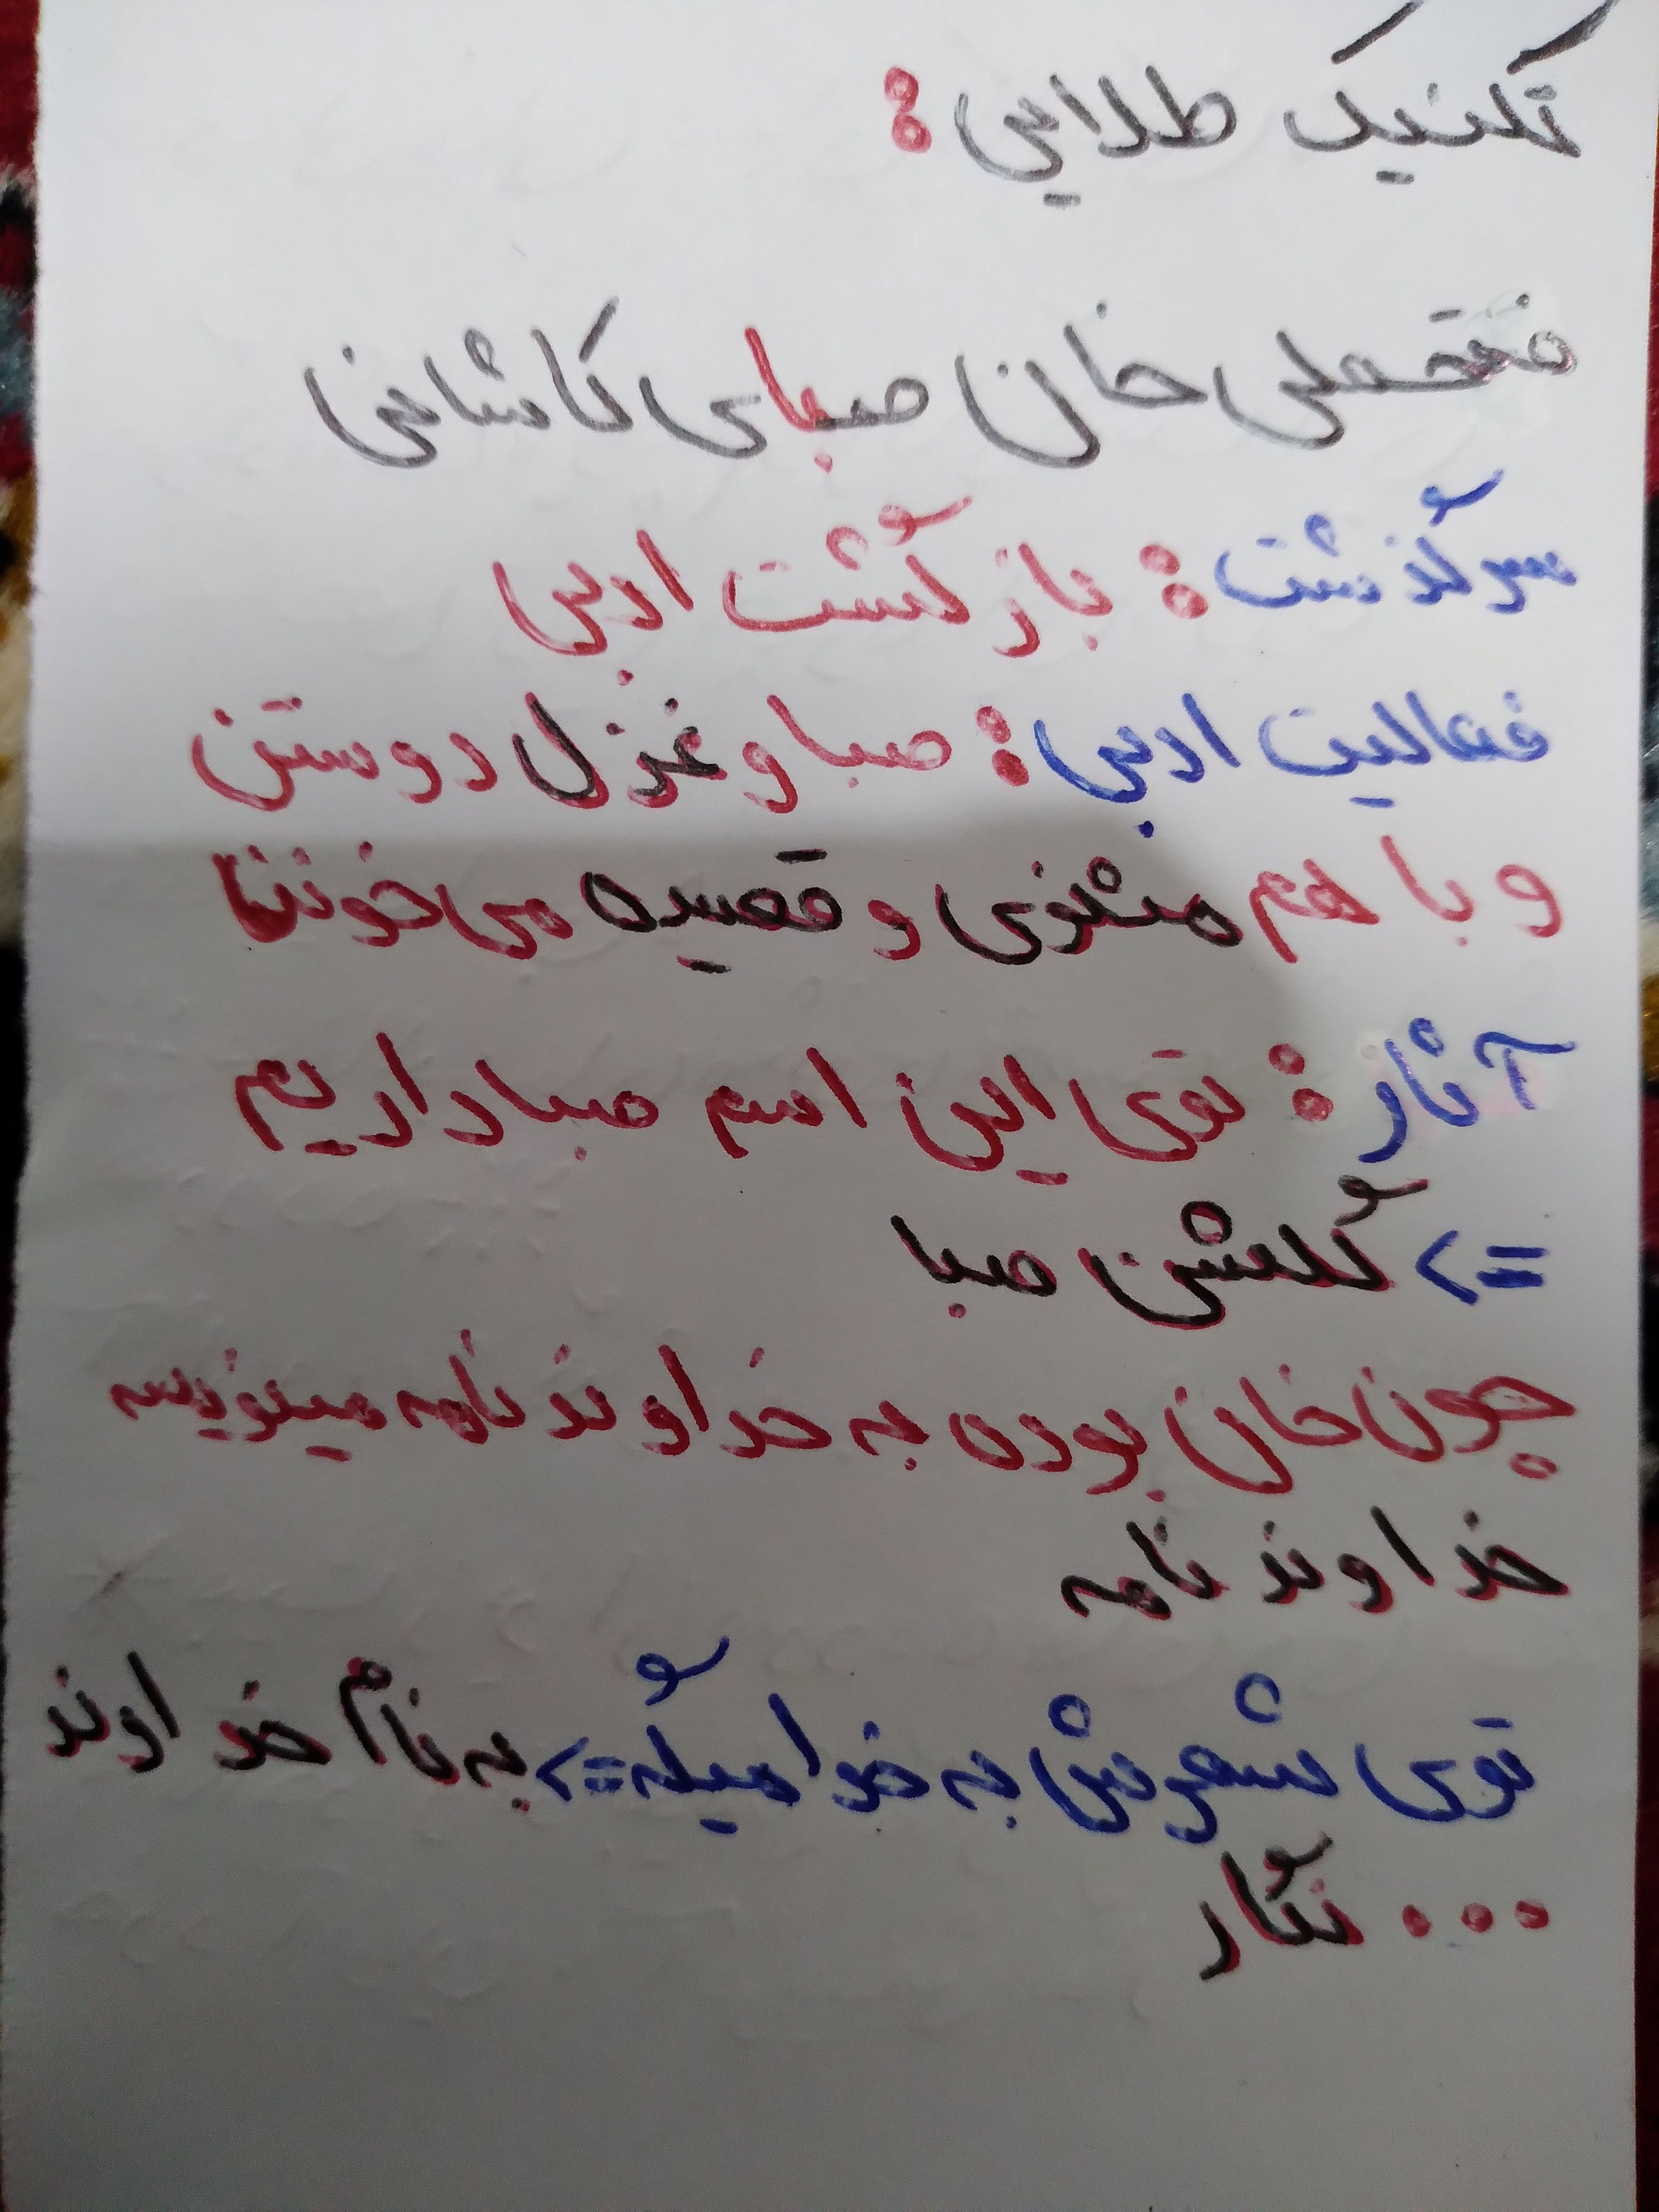 تکنیک طلایی:
فتحعلی خان صبای کاشانی
سرگذشت: بازگشت ادبی
فعالیت ادبی: صبا و غزل دوستن
و با هم مثنوی و قصیده می خونن
آثار: توی این اسم صبا داریم
=> گلشن صبا
چون خان بوده به خداوند نامه مینویسه
خداوند نامه
توی شعرش به خدا میگه => به نام خداوند
... نگار